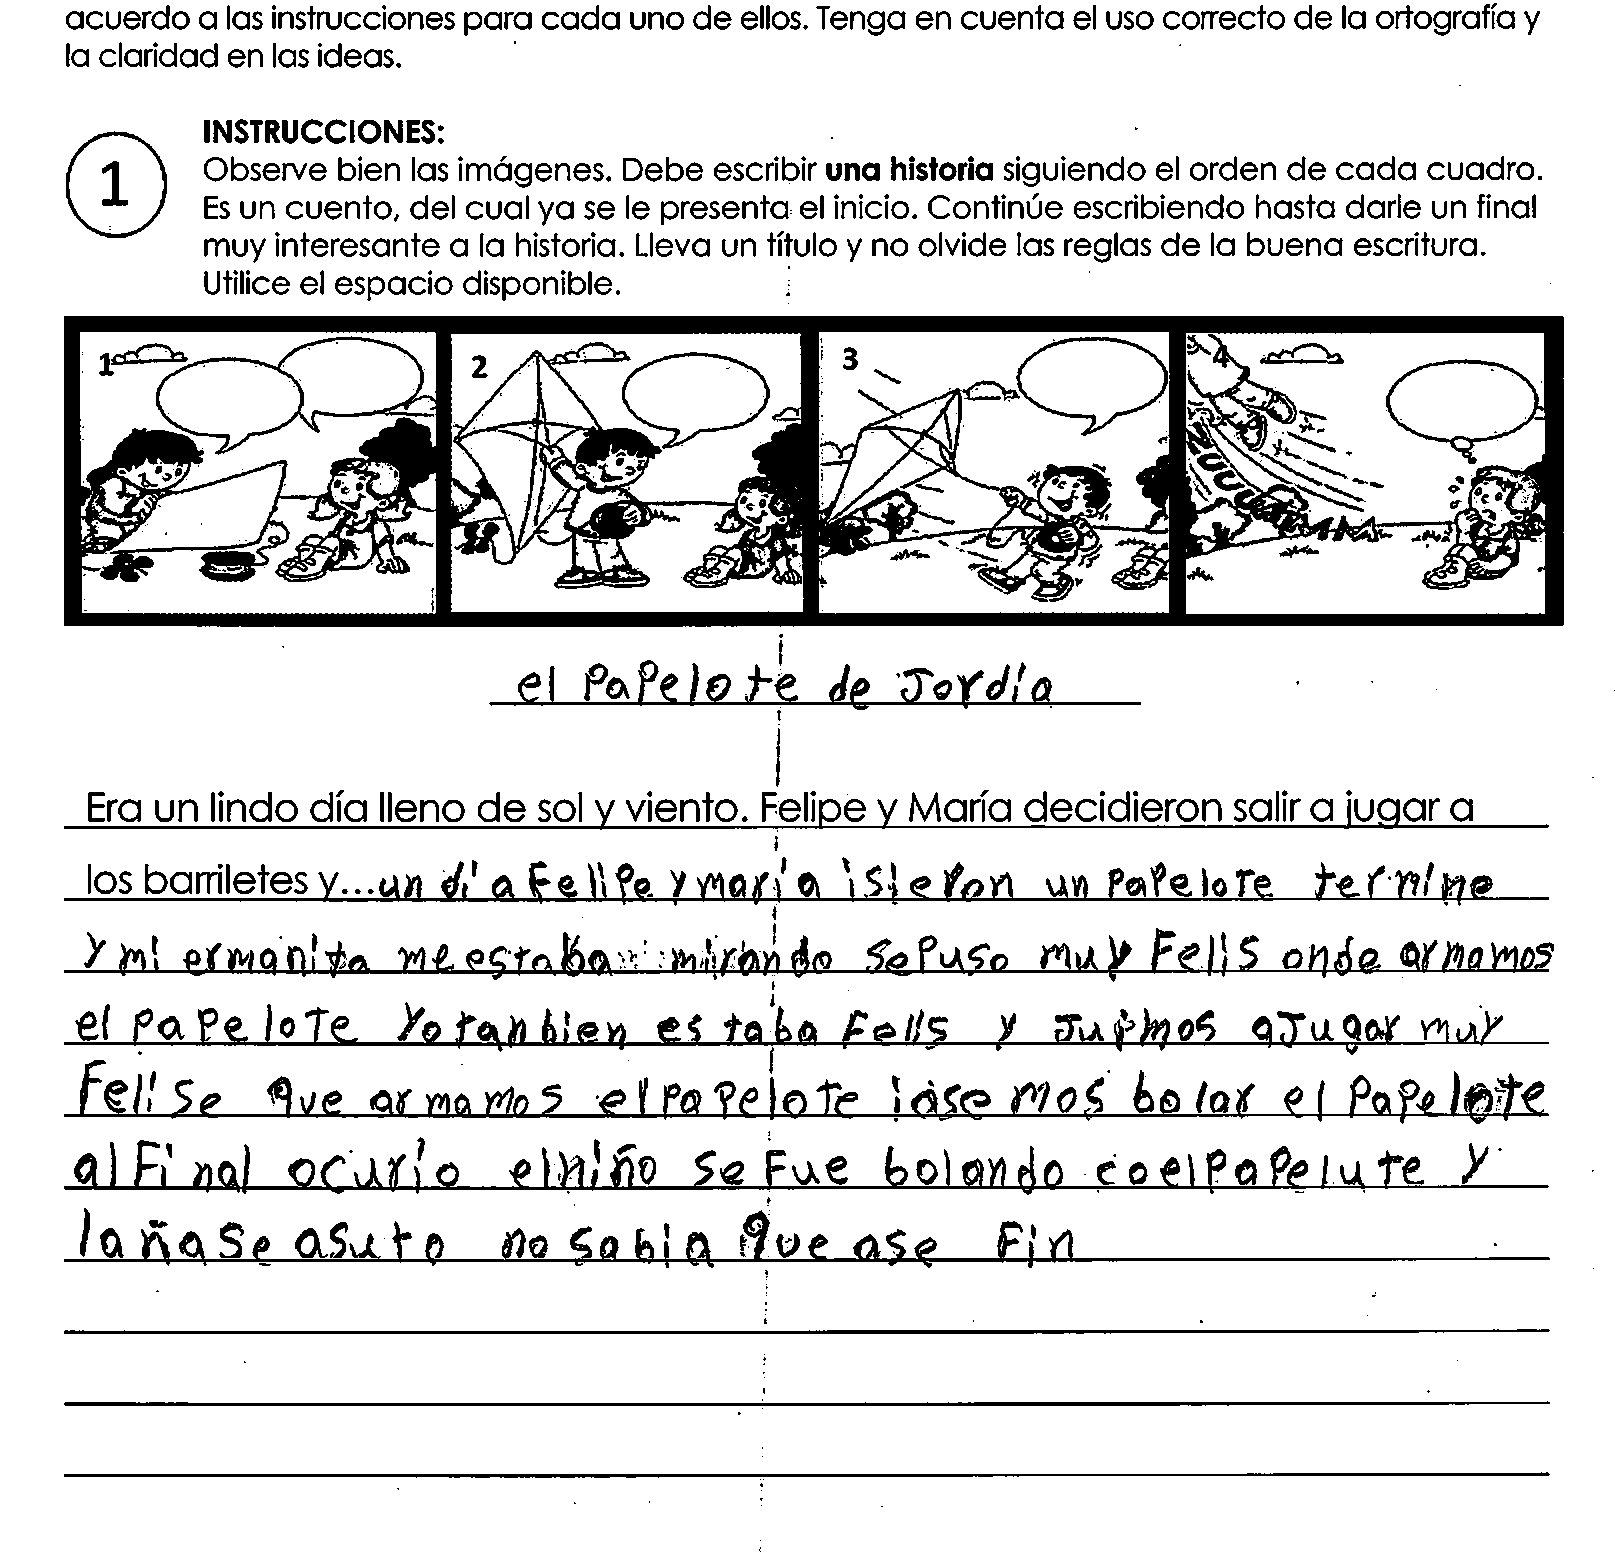 acuerdo a las instrucciones para cada uno de ellos. Tenga en cuenta el uso correcto de la ortografía y
la claridad en las ideas.
1
INSTRUCCIONES:
Observe bien las imágenes. Debe escribir una historia siguiendo el orden de cada cuadro.
Es un cuento, del cual ya se le presenta el inicio. Continúe escribiendo hasta darle un final
muy interesante a la historia. Lleva un título y no olvide las reglas de la buena escritura.
Utilice el espacio disponible.
1 2 3 4
el papelote de Jordia
Era un lindo día lleno de sol y viento. Felipe y María decidieron salir a jugar a
los barriletes y...un dia Felipe y maria isieron un papelote termine
y mi ermanita me estaba mirando se puso muy Felis onde armamos
el papelote yo tanbien estaba Felis y Juimos a Jugar muy
Felise que armamos el papelote iasemos bolar el papelote
al Final ocurio el niño se Fue bolando co el papelute y
la ña se asuto no sabia que ase Fin